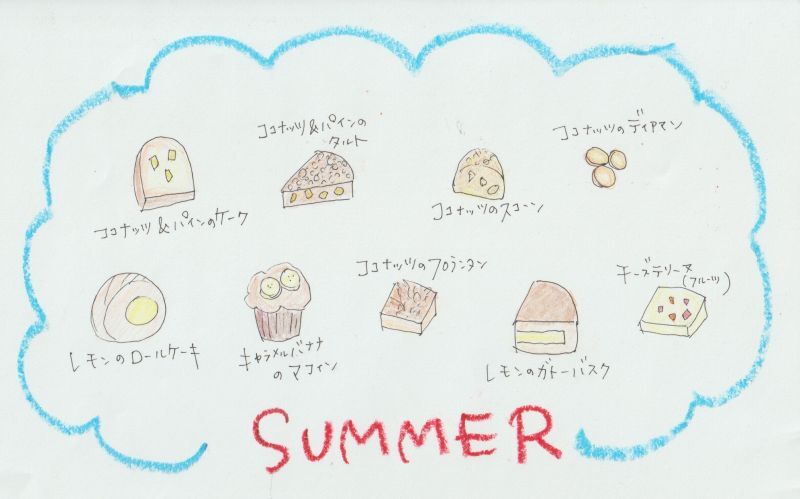 ココナッツ&パインの
タルト
ココナッツのディアマン
ココナッツ&パインのケーク
ココナッツのスコーン
ココナッツのフロランタン
チーズテリーヌ
(フルーツ)
レモンのロールケーキ
キャラメルバナナ
のマフィン
レモンのガトーバスク
SUMMER